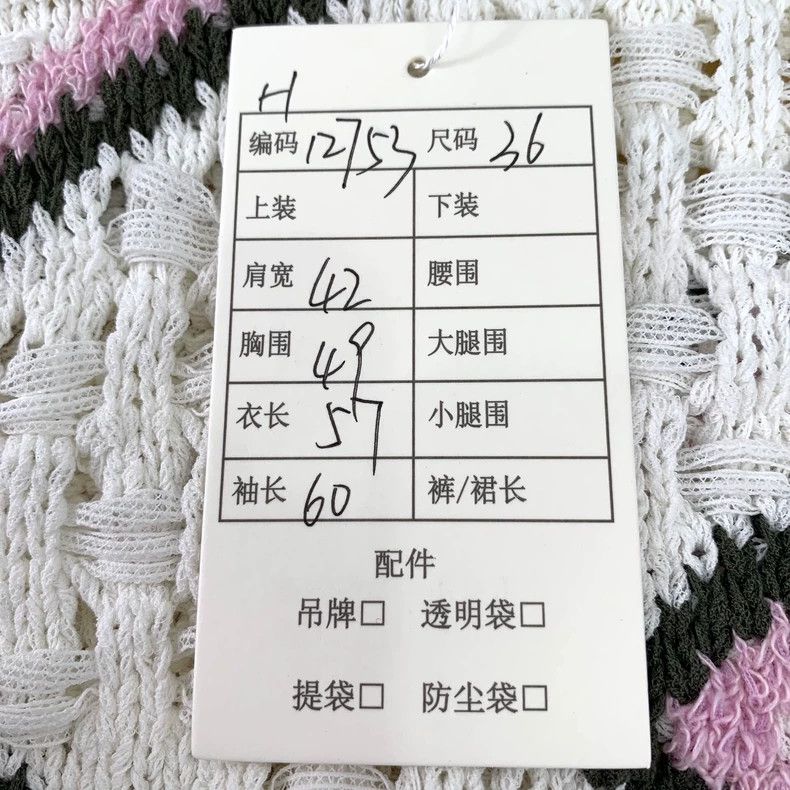 H
编码 12753 尺码 36
上装 下装
肩宽 42 腰围
胸围 49 大腿围
衣长 57 小腿围
袖长 60 裤/裙长
配件
吊牌□ 透明袋□
提袋□ 防尘袋□